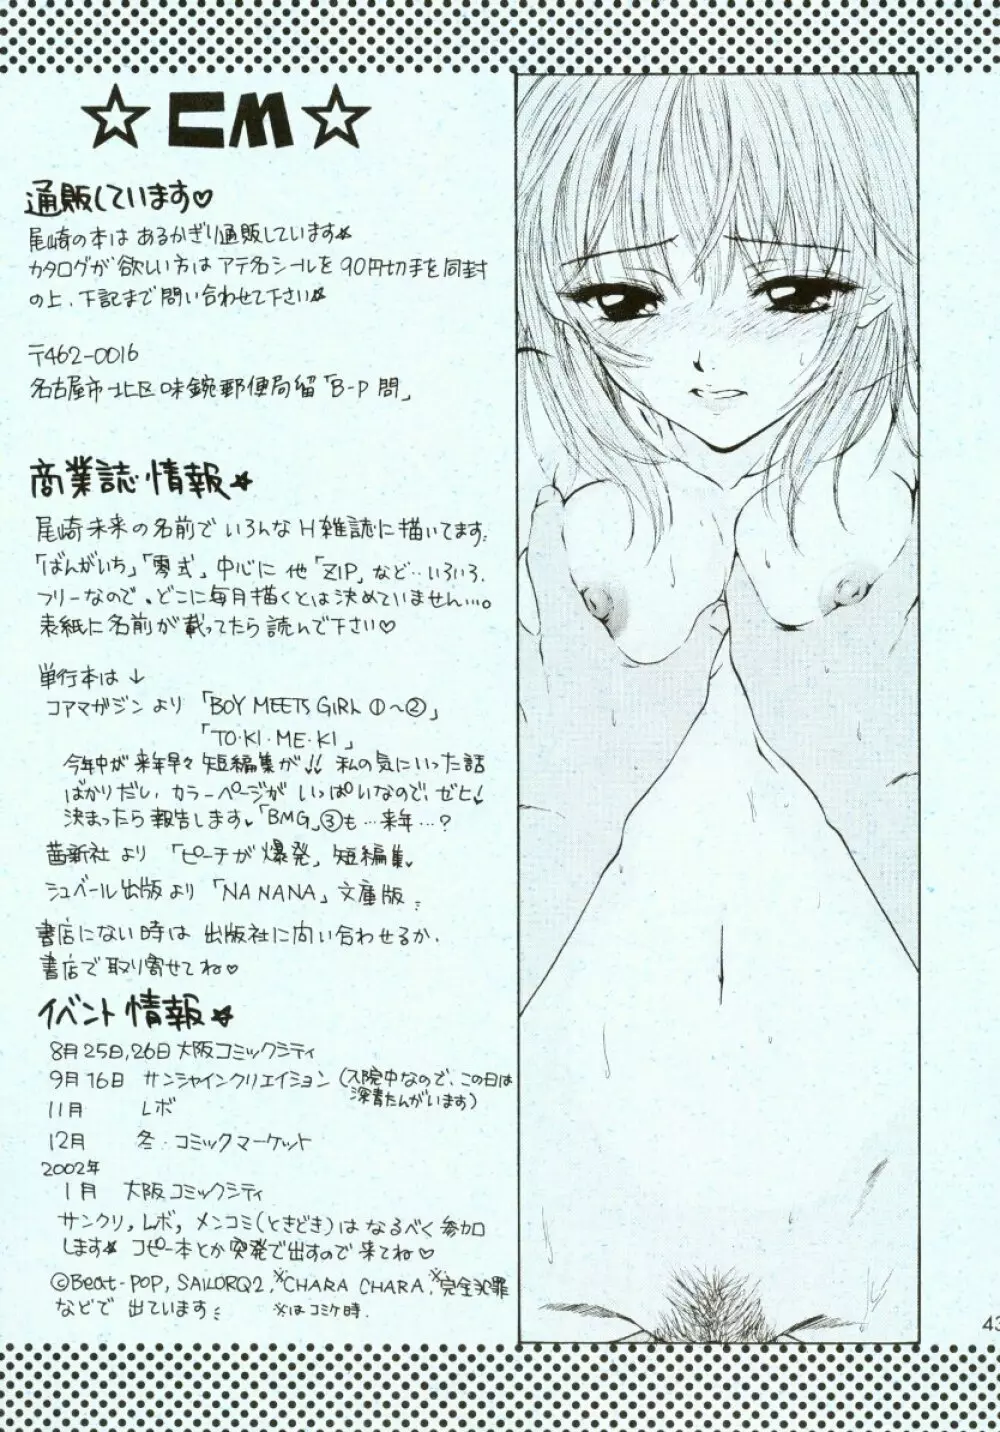 ☆CM☆
通販しています♡
尾崎の本は あるかぎり通販しています★
カタログが欲しい方は アテ名シールを 90円切手を同封
の上、下記まで問い合わせて下さい★
〒462-0016
名古屋市北区味鋺郵便局留「B-P 問」
商業誌情報★
尾崎未来の名前で いろんな H雑誌に描いてます。
「ばんがいち」「零式」中心に 他「ZIP」など…いろいろ.
フリーなので、どこに毎月描くとは決めていません…。
表紙に名前が載ってたら読んで下さい♡
単行本は↓
コアマガジン より 「BOY MEETS GIRL ①〜②」
「TO・KI・ME・KI」
今年中か来年早々 短編集が!! 私の気にいった話
ばかりだし、カラーページが いっぱいなので、ゼヒ!
決まったら報告します♥「BMG」③も…来年…?
茜新社 より 「ピーチが爆発」短編集♥
シュベール出版より 「NANANA」文庫版
書店にない時は 出版社に問い合わせるか、
書店で取り寄せてね♡
イベント情報★
8月25日,26日 大阪コミックシティ
9月16日 サンシャインクリエイション (入院中なので、この日は
深青たんがいます)
11月 レボ
12月 冬・コミックマーケット
2002年
1月 大阪コミックシティ
サンクリ, レボ, メンコミ(ときどき)は なるべく参加
します★ コピー本とか突発で出すので 来てね♡
©Beat-POP, SAILORQ2, ※CHARA CHARA, ※完全犯罪
などで 出ています ※はコミケ時.
43